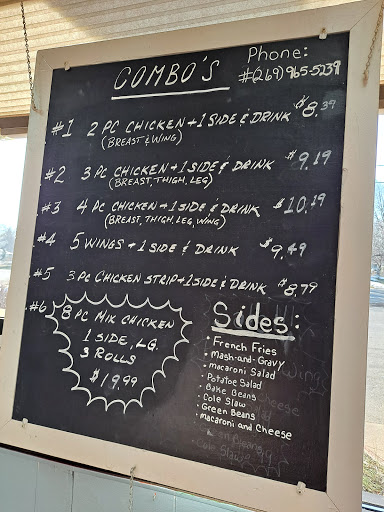 COMBO'S
Phone:
#(269) 965-5239
#1 2 PC CHICKEN + 1 SIDE & DRINK $8.39
(BREAST & WING)
#2 3 PC CHICKEN + 1 SIDE & DRINK $9.19
(BREAST, THIGH, LEG)
#3 4 PC CHICKEN + 1 SIDE & DRINK $10.29
(BREAST, THIGH, LEG, WING)
#4 5 WINGS + 1 SIDE & DRINK $9.49
#5 3 PC CHICKEN STRIP + 1 SIDE & DRINK $8.79
#6 8 PC MIX CHICKEN
1 SIDE, LG.
3 ROLLS
$19.99
Sides:
• French Fries
• Mash-and-Gravy
• macaroni Salad
• Potatoe Salad
• Bake Beans
• Cole Slaw
• Green Beans
• macaroni and Cheese